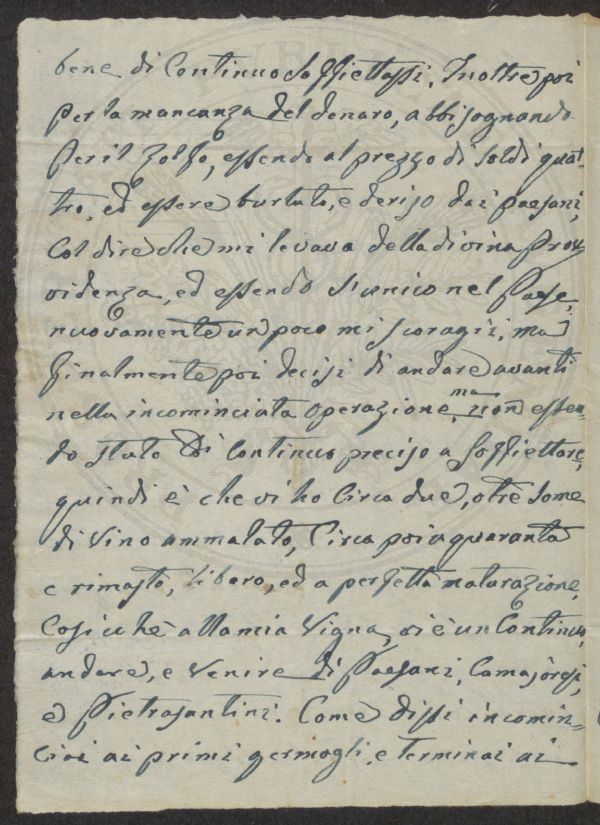 bene di Continuo Soffiettassi. Inoltre poi
per la mancanza del denaro, abbisognando
per il Zolfo, essendo al prezzo di soldi quat-
tro, ed essere burlato, e deriso dai paesani,
Col dire che mi levava della divina Prov-
videnza, ed essendo l'unico nel Paese,
nuovamente un poco mi scoragii, ma
finalmente poi decisi di andare avanti
nella incominciata operazione, ma non essen-
do stato di Continuo preciso a Soffiettare,
quindi è che vi ho Circa due, o tre Some
di Vino ammalato, Circa poi a quaranta
e rimasto, libero, ed a perfetta maturazione,
Cosi che alla mia Vigna, vi è un Continuo,
andare, e Venire di Paesani, Camajoresi,
e Pietrasantini. Come dissi incomin-
ciai ai primi germogli, e terminai ai